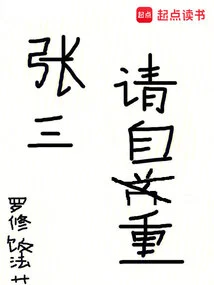 起点 起点读书
张三
请自重
罗修法艹